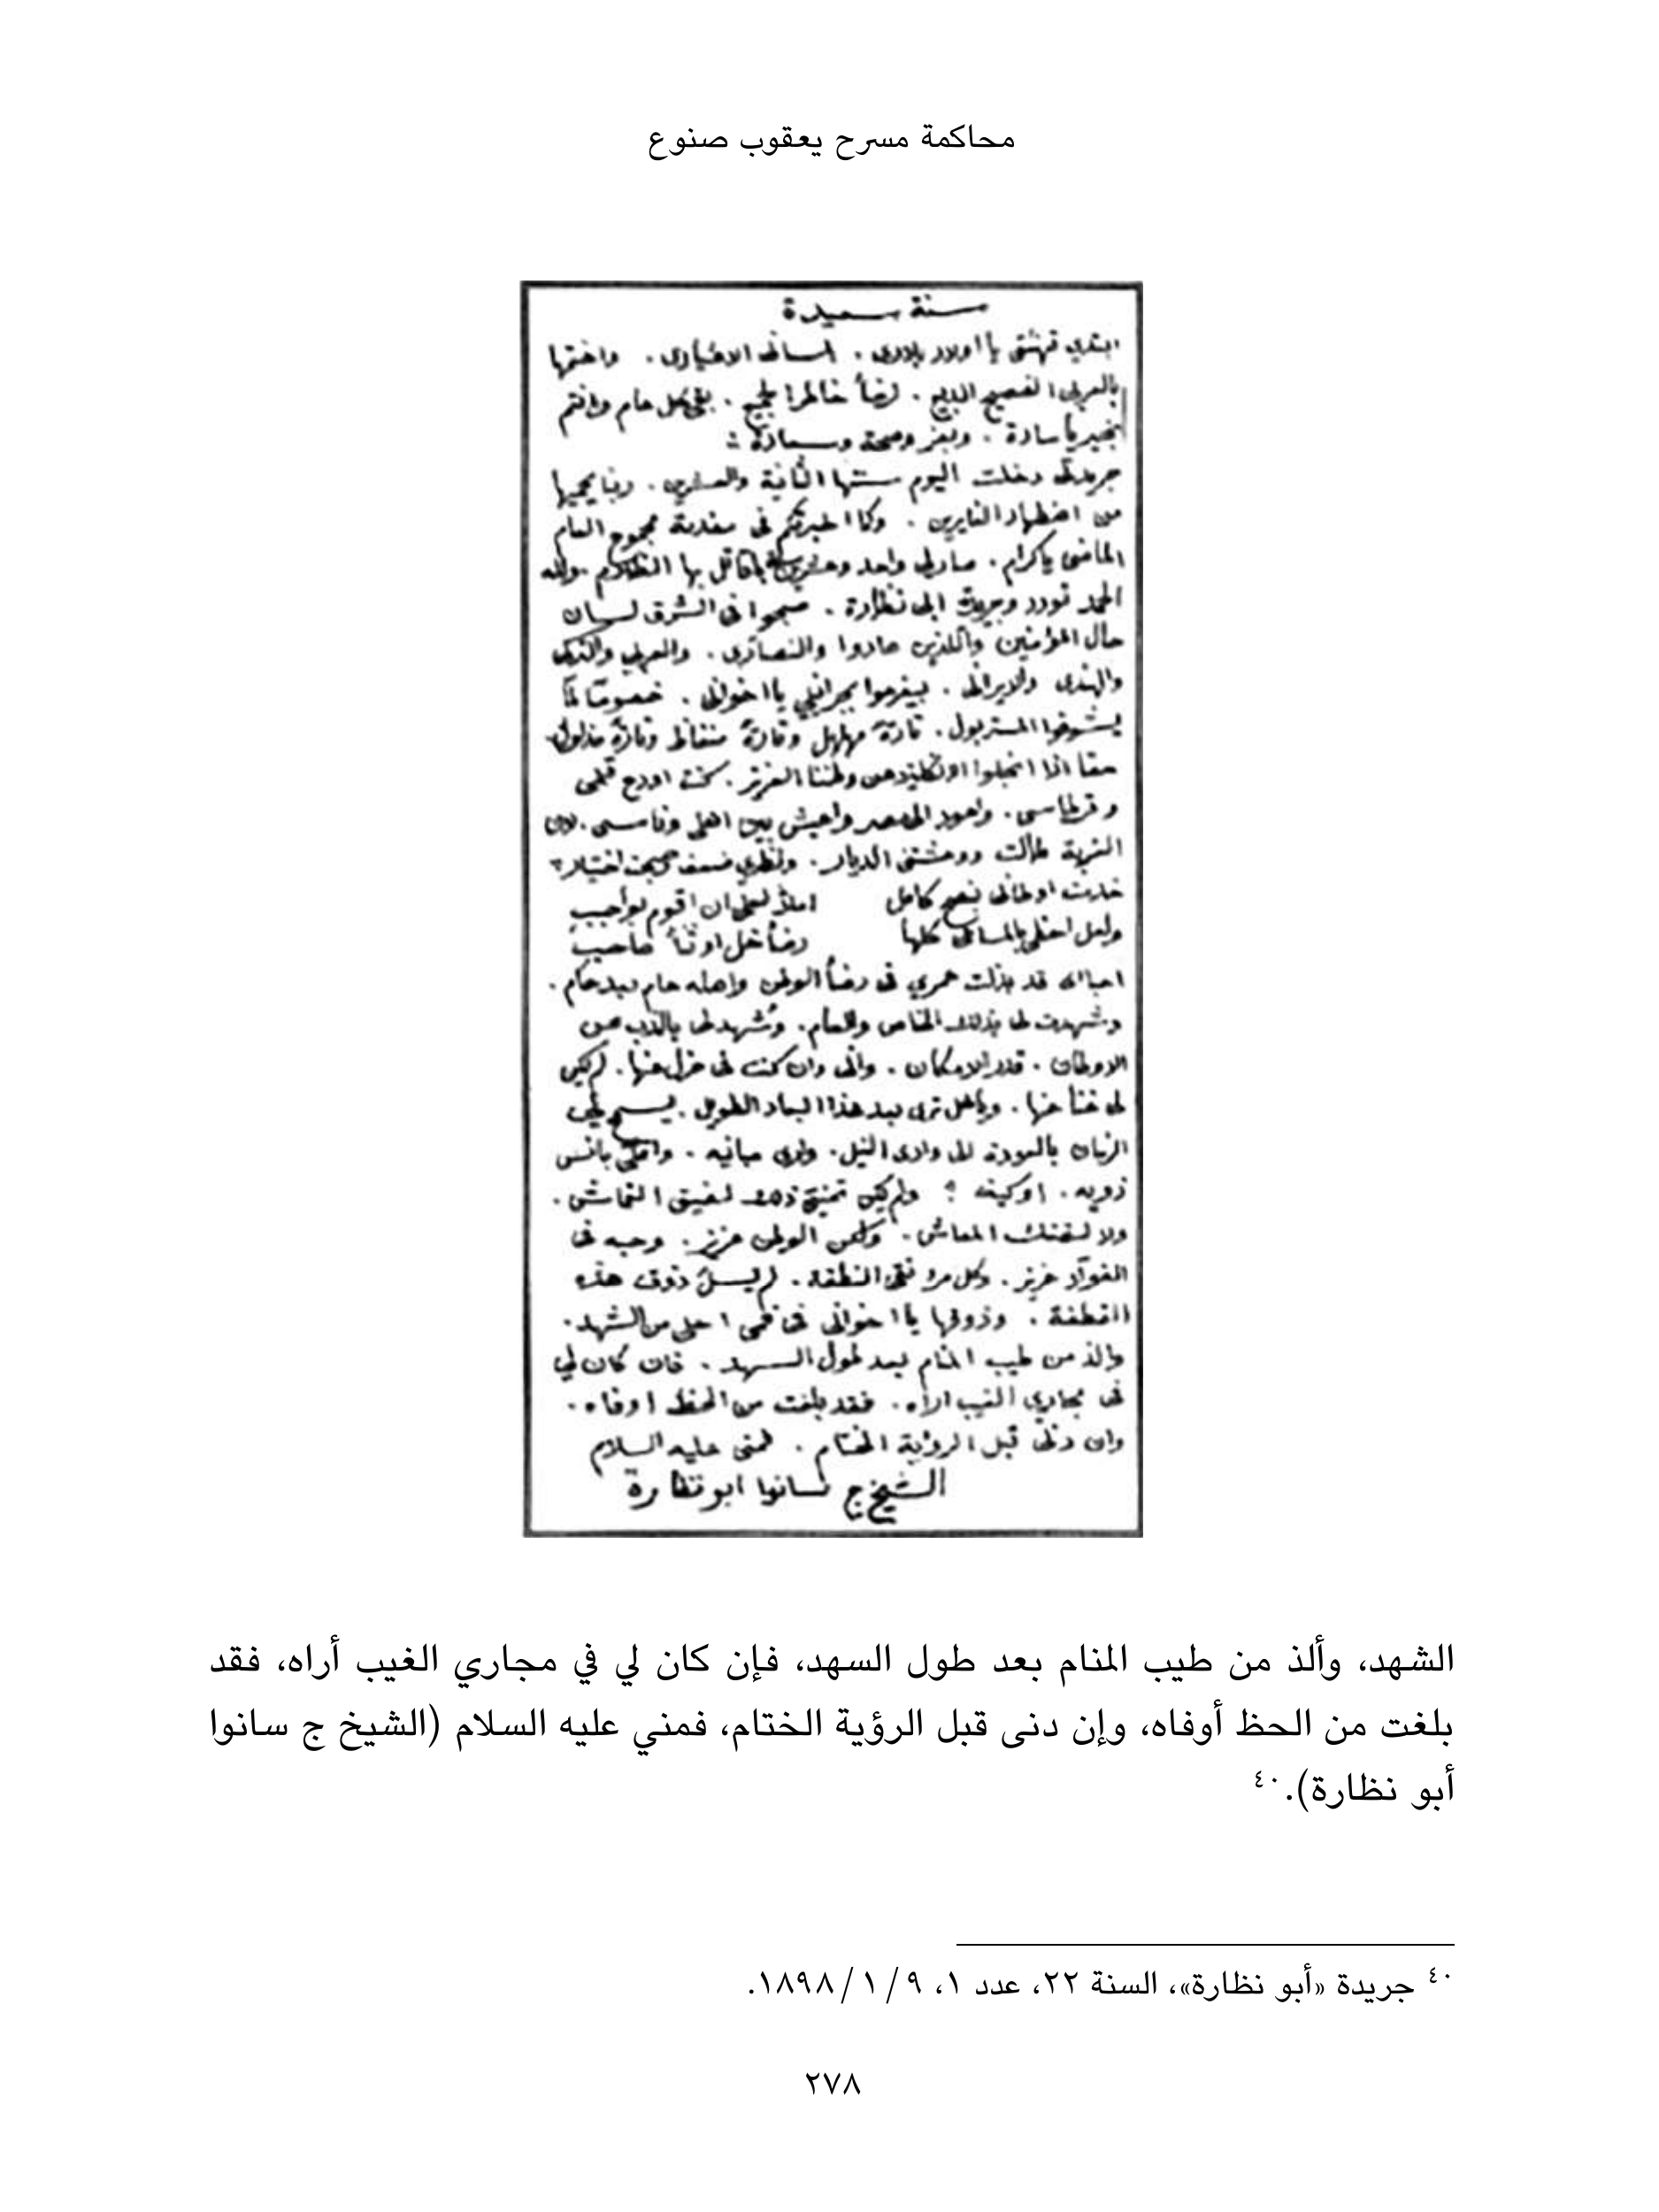 محاكمة مسرح يعقوب صنوع
سنة سعيدة
ابتدي تهنئتي يا اولاد بلادي . بلساني الاعتيادي . واختمها
بالعربي الفصيح البديع . ارضأ خاطرا لجميع . بقى كل عام وانتم
بخير يا سادة . وبعز وصحة وسعادة
جريدتي دخلت اليوم سنتها الثانية والعشرين . ربنا يحميها
من . وكما اخبرتكم في مقدمة مجموع العام
الماضي ياكرام . صار لي واحد وعشرين سنة باقاتل بها الظلام . ولله
الحمد تودد وجريدة ابى نظارة . صبحوا في الشرق لسان
حال المؤمنين والذين هادوا والنصارى . والعربي والتركي
والهندي والايراني . بيغرموا بجرانيلي يا اخواني . خصوصًا لما
يشوفوا المستر بول . تارة وتارة وتارة
حقا اذا انجلوا الانكليز عن وطننا العزيز . كنت اودع قلمي
وقرطاسي . واعود الى مصر واعيش بين اهلي وناسي . لان
الغربة طالت ووحشتني الديار . ونظري ضعف
خدمت اوطاني بنصح كامل املاً لعلي ان اقوم بواجب
ولعل احظى بالمساعي كلها رضأ خل اوثنأ صاحب
احباي قد بذلت عمري في رضأ الوطن واهله عام بعد عام .
وشهدت لي بذلك الخاص والعام . وشهد لي بالذب عن
الاوطان . قدر الامكان . واني وان كنت في عزل عنها . لم يكن
لي غنأ عنها . ويا هل ترى بعد هذا البعاد الطويل . يسمح لي
الزمان بالعودة الى وادي النيل . وارى مبانيه . وبانس
ذويه . او كيف ؟ ولم يكن تمني ذلك لضيق القماش .
ولا لضنك المعاش . ولكن الوطن عزيز . وحبه في
الفوأد غزيز . وكل مرء نقي النطفة . لم يسل ذوق هذه
القطفة . وذوقها يا اخواني في فمي احلى من الشهد .
والذ من طيب المنام بعد طول السهد . فان كان لي
في مجاري الغيب اراه . فقد بلغت من الحظ اوفاه .
وان دنى قبل الرؤية الختام . فمني عليه السلام
الشيخ ج سانوا ابو نظارة
الشهد، وألذ من طيب المنام بعد طول السهد، فإن كان لي في مجاري الغيب أراه، فقد
بلغت من الحظ أوفاه، وإن دنى قبل الرؤية الختام، فمني عليه السلام (الشيخ ج سانوا
أبو نظارة).٤٠
٤٠ جريدة «أبو نظارة»، السنة ٢٢، عدد ١، ٩ / ١ / ١٨٩٨.
٢٧٨